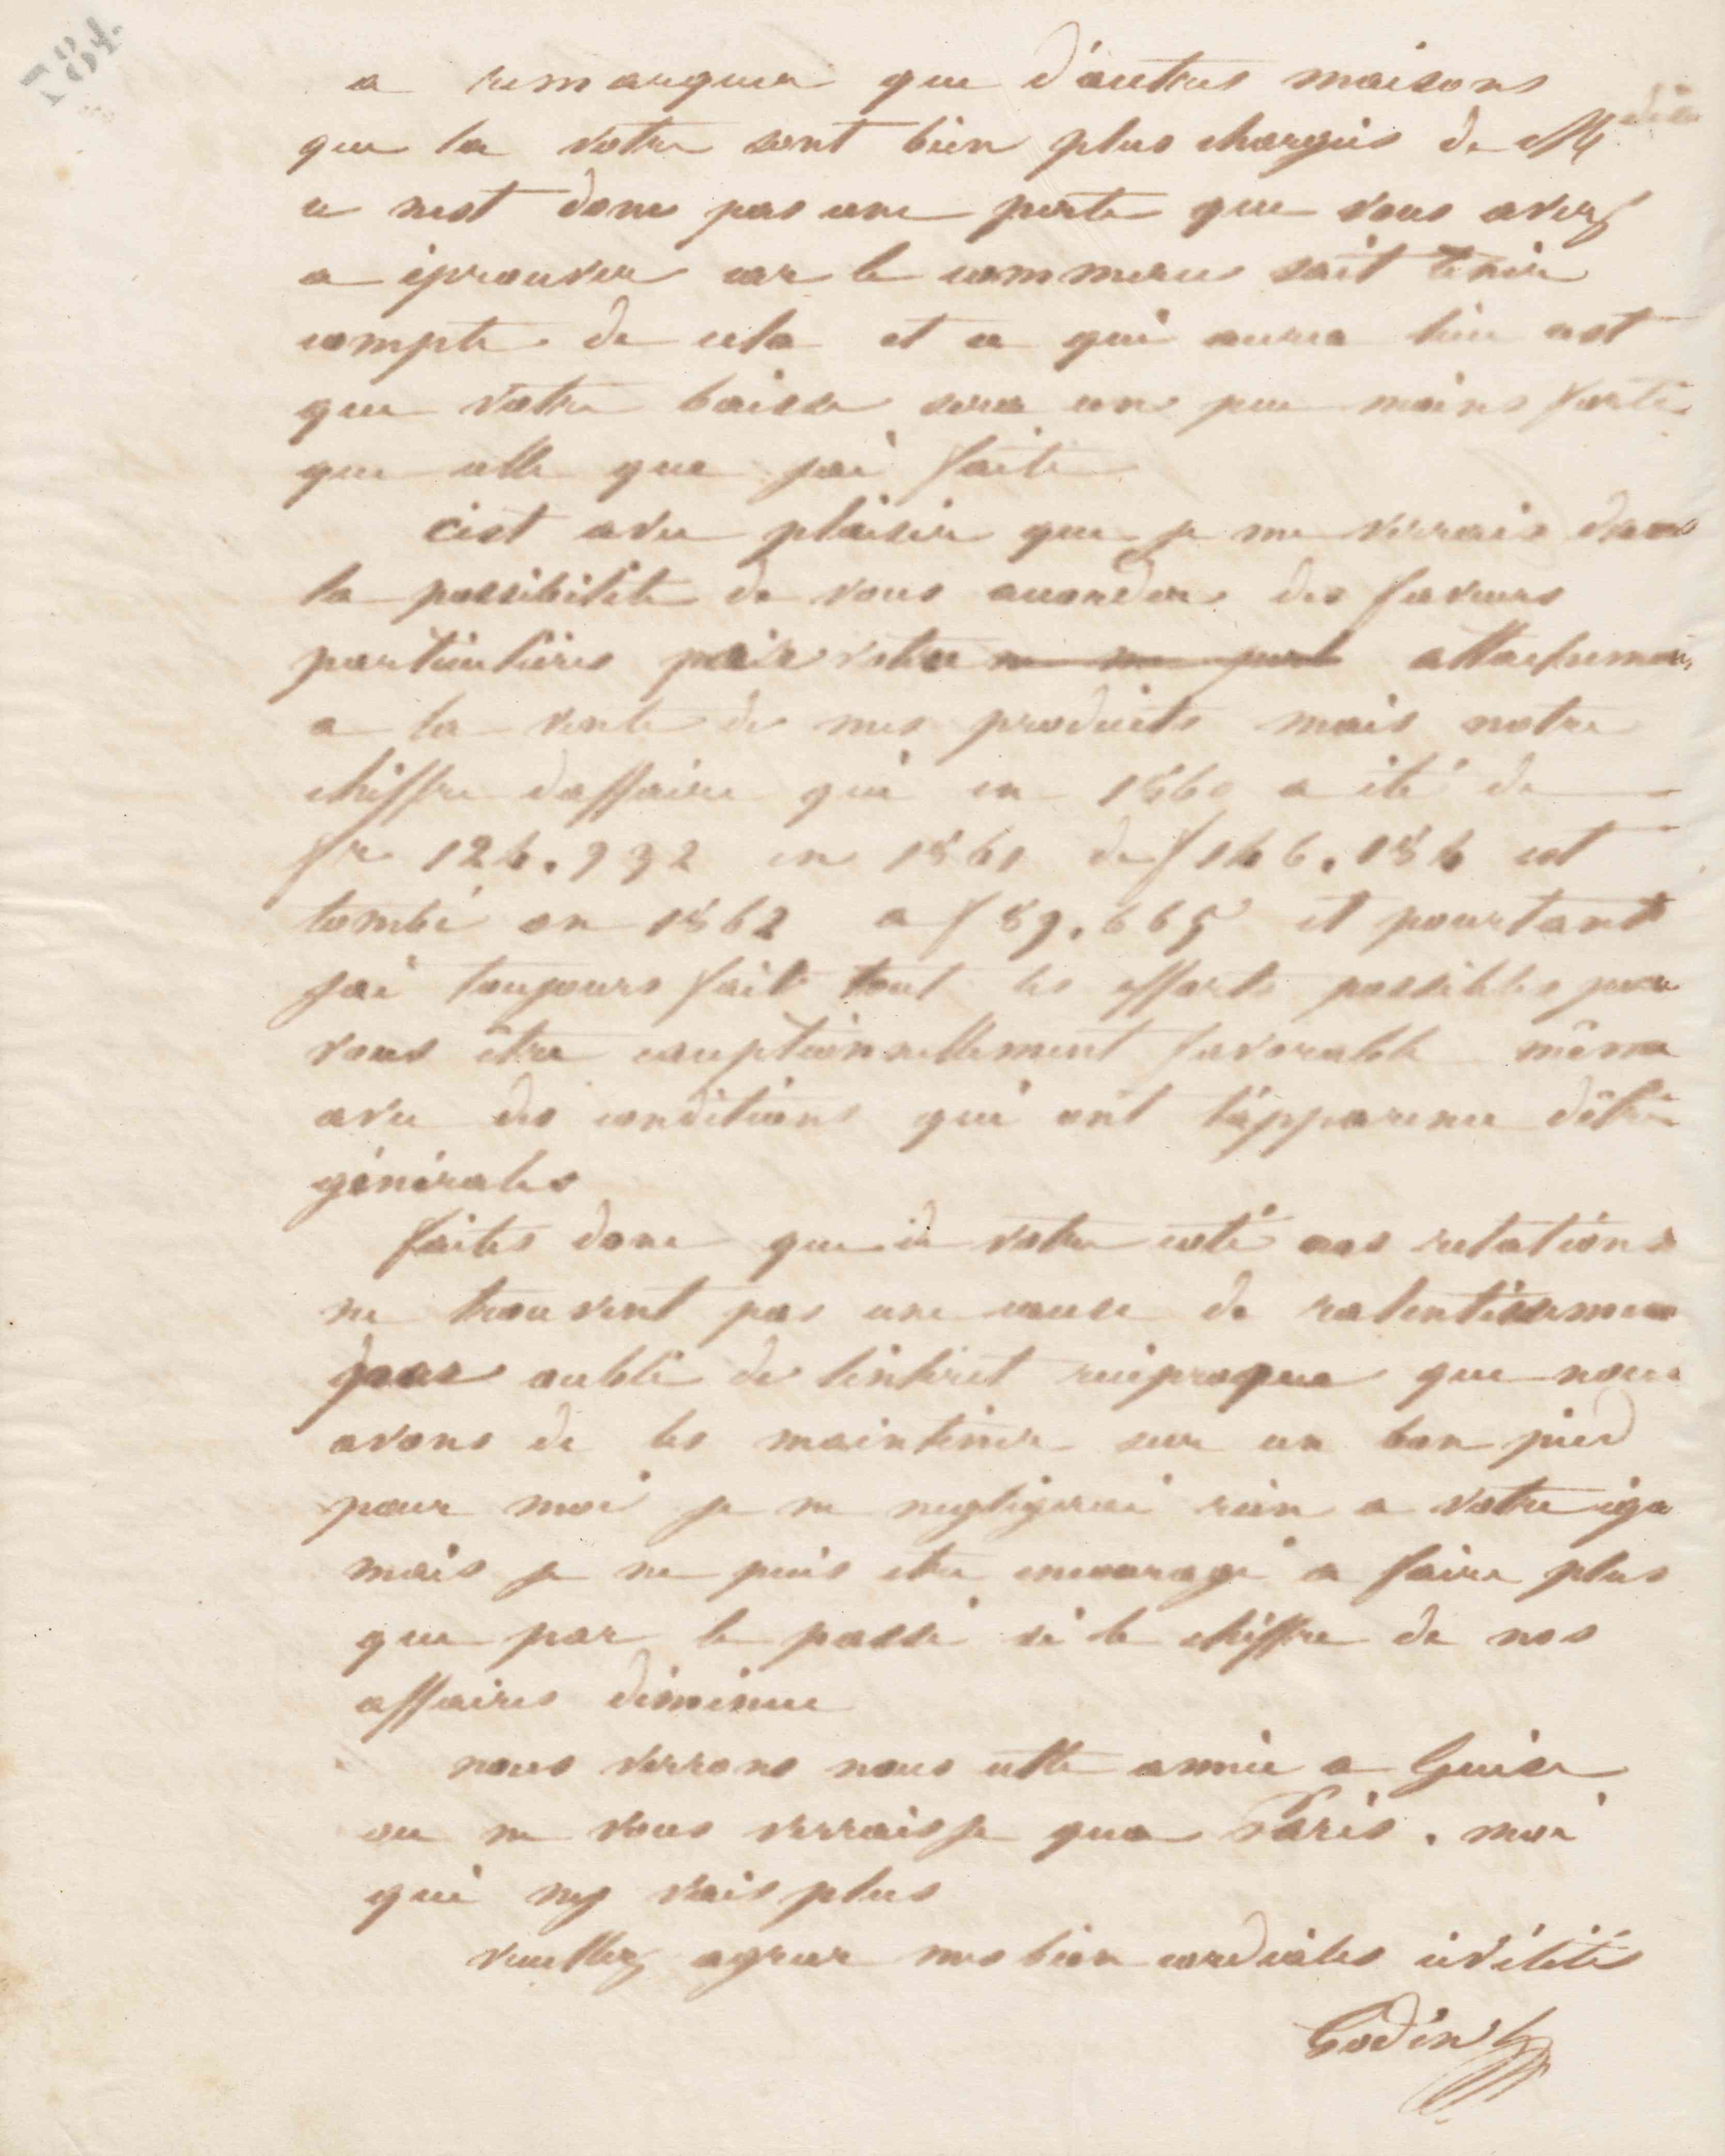 784
a remarquer que d'autres maisons
que la votre sont bien plus chargées de M
ce nest donc pas une perte que vous avez
a éprouver car le commerce sait tenir
compte de cela et ce qui aura lieu cest
que votre baisse sera un peu moins forte
que celle que jai faite
cest avec plaisir que je me verrais dans
la possibilité de vous accorder des faveurs
particulières pour votre attachement
a la vente de mes produits mais notre
chiffre daffaire qui en 1860 a été de
fr en 1861 de f est
tombé en 1862 a f 89.665 et pourtant
jai toujours fait tout les efforts possibles pour
vous être exceptionnellement favorable même
avec des conditions qui ont l'apparence dêtre
générales
faites donc que de votre coté nos relations
ne trouvent pas une cause de ralentissement
par oubli de lintéret réciproque que nous
avons de les maintenir sur un bon pied
pour moi je ne negligerai rien a votre éga
mais je ne puis etre encouragé a faire plus
que par le passé si le chiffre de nos
affaires diminue
nous verrons nous cette année a Guise
ou ne vous verraisje qua Paris. moi
qui ny vais plus
veuillez agréer mes bien cordiales civilités
Godin